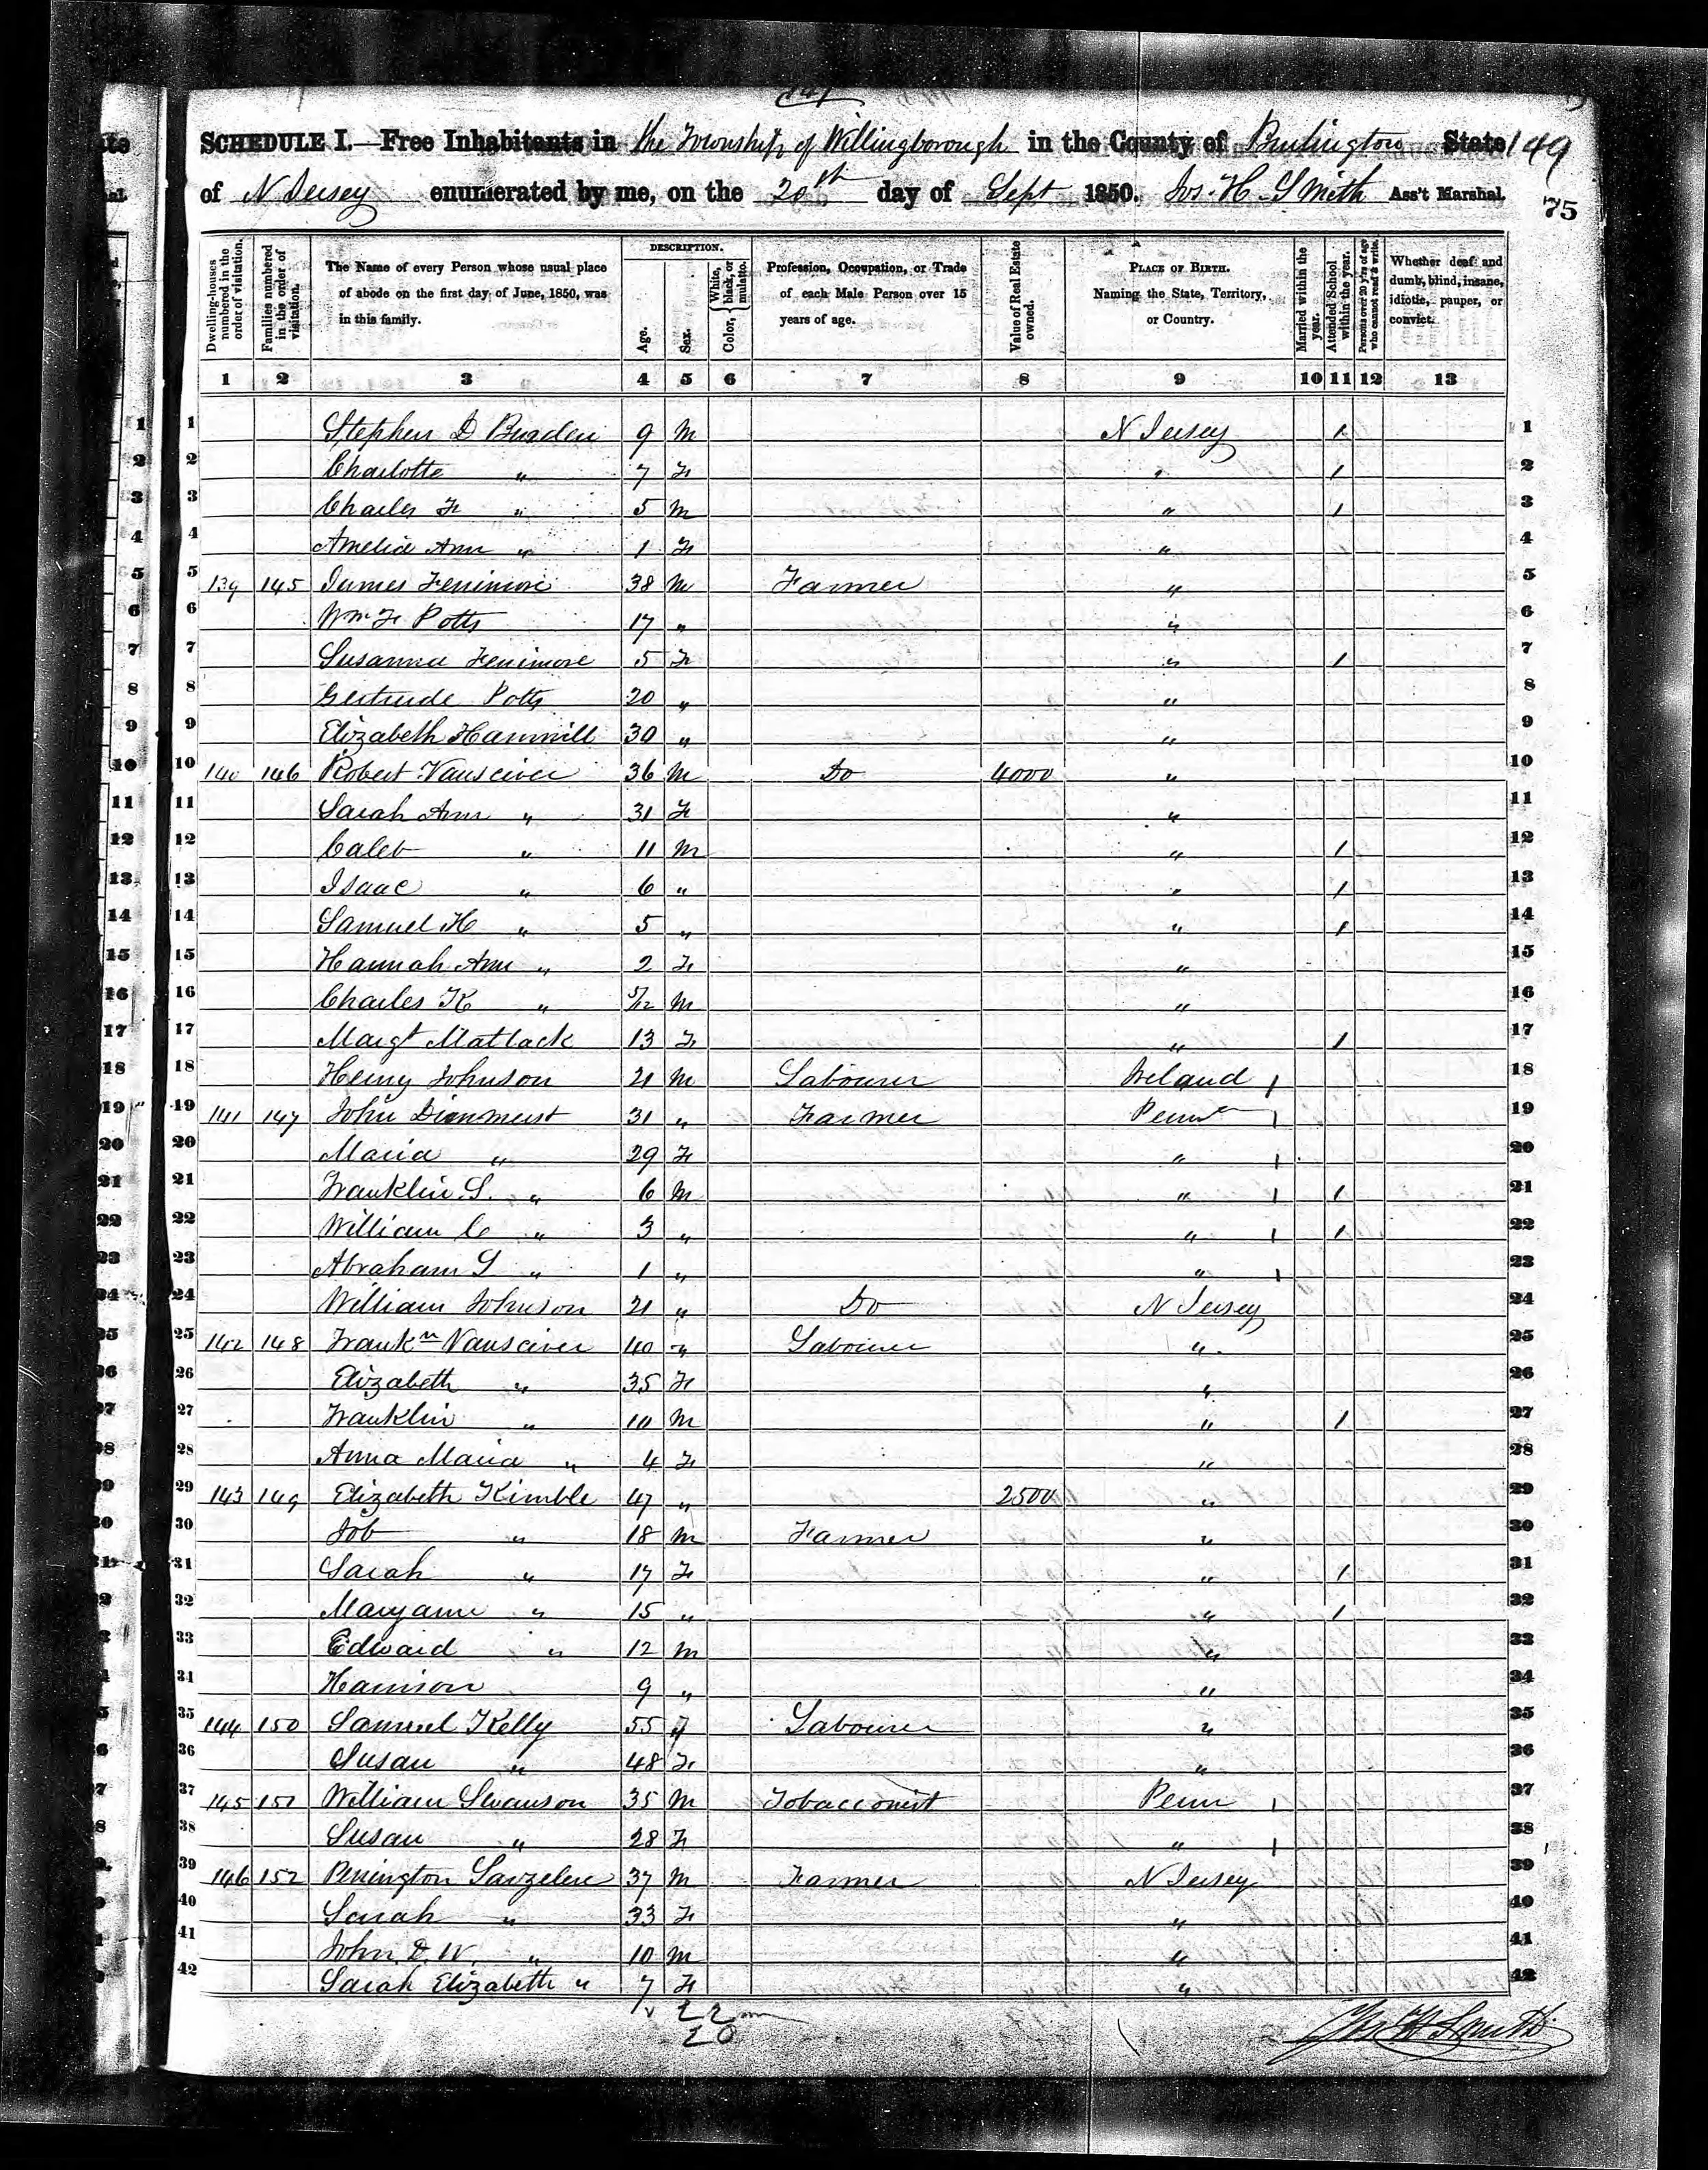 141
SCHEDULE I.—Free Inhabitants in the Township of Willingborough in the County of Burlington State 149
of N Jersey enumerated by me, on the 20th day of Sept 1850. Jos. H. Smith Ass't Marshal.
75
Dwelling-houses numbered in the order of visitation.
Families numbered in the order of visitation.
The Name of every Person whose usual place of abode on the first day of June, 1850, was in this family.
DESCRIPTION.
Age.
Sex.
Color, { White, black, or mulatto.
Profession, Occupation, or Trade of each Male Person over 15 years of age.
Value of Real Estate owned.
PLACE OF BIRTH. Naming the State, Territory, or Country.
Married within the year.
Attended School within the year.
Persons over 20 y'rs of age who cannot read & write.
Whether deaf and dumb, blind, insane, idiotic, pauper, or convict.
1 2 3 4 5 6 7 8 9 10 11 12 13
1 Stephen D Burden 9 M N Jersey 1 1
2 Charlotte " 7 F " 1 2
3 Charles F " 5 M " 1 3
4 Amelia Ann " 1 F " 4
5 139 145 James Fenimore 38 M Farmer " 5
6 Wm F Potts 17 " " 6
7 Susanna Fenimore 5 F " 1 7
8 Gertrude Potts 20 " " 8
9 Elizabeth Hammill 30 " " 9
10 140 146 Robert Vansciver 36 M Do 4000 " 10
11 Sarah Ann " 31 F " 11
12 Caleb " 11 M " 1 12
13 Isaac " 6 " " 1 13
14 Samuel H " 5 " " 1 14
15 Hannah Ann " 2 F " 15
16 Charles K " 5/12 M " 16
17 Margt Matlack 13 F " 1 17
18 Henry Johnson 21 M Labourer Ireland 1 18
19 141 147 John 31 " Farmer Penna 1 19
20 Maria " 29 F " 1 20
21 Franklin S. " 6 M " 1 1 21
22 William C " 3 " " 1 1 22
23 Abraham S " 1 " " 1 23
24 William Johnson 21 " Do N Jersey 24
25 142 148 Frankn Vansciver 40 " Labourer " 25
26 Elizabeth " 35 F " 26
27 Franklin " 10 M " 1 27
28 Anna Maria " 4 F " 28
29 143 149 Elizabeth Kimble 47 " 2500 " 29
30 Job " 18 M Farmer " 30
31 Sarah " 17 F " 1 31
32 Maryann " 15 " " 1 32
33 Edward " 12 M " 33
34 Harrison 9 " " 34
35 144 150 Samuel Kelly 55 Labourer " 35
36 Susan " 48 F " 36
37 145 151 William Swanson 35 M Tobacconist Penn 1 37
38 Susan " 28 F " 1 38
39 146 152 Penington 37 M Farmer N Jersey 39
40 Sarah " 33 F " 40
41 John D. W. " 10 M " 41
42 Sarah Elizabeth " 7 F " 42
22 m
20
Jos H Smith